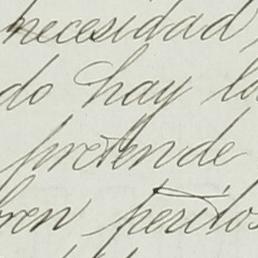 necesidad
do hay lo
pretende
bren peritos